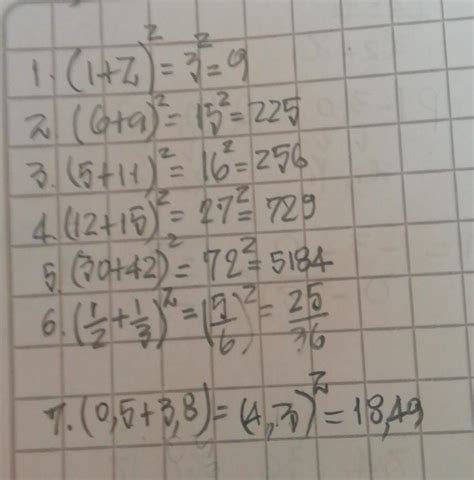 1. (1+2)² = 3² = 9
2. (6+9)² = 15² = 225
3. (5+11)² = 16² = 256
4. (12+15)² = 27² = 729
5. (30+42)² = 72² = 5184
6. (1/2 + 1/3)² = (5/6)² = 25/36
7. (0,5+3,8) = (4,3)² = 18,49